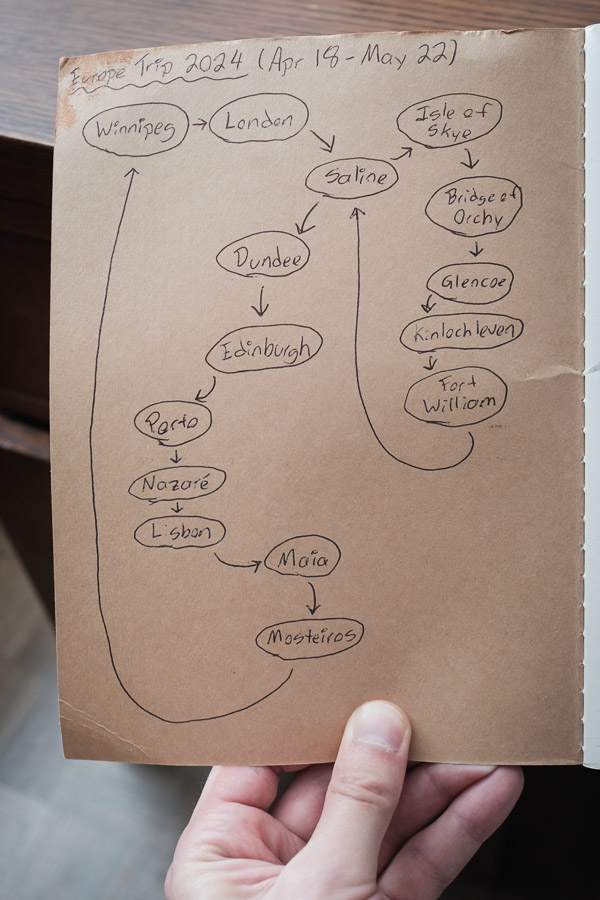 Europe Trip 2024 (Apr 18 - May 22)
Winnipeg
London
Saline
Isle of
Skye
Bridge of
Orchy
Glencoe
Kinlochleven
Fort
William
Dundee
Edinburgh
Porto
Nazaré
Lisbon
Maia
Mosteiros